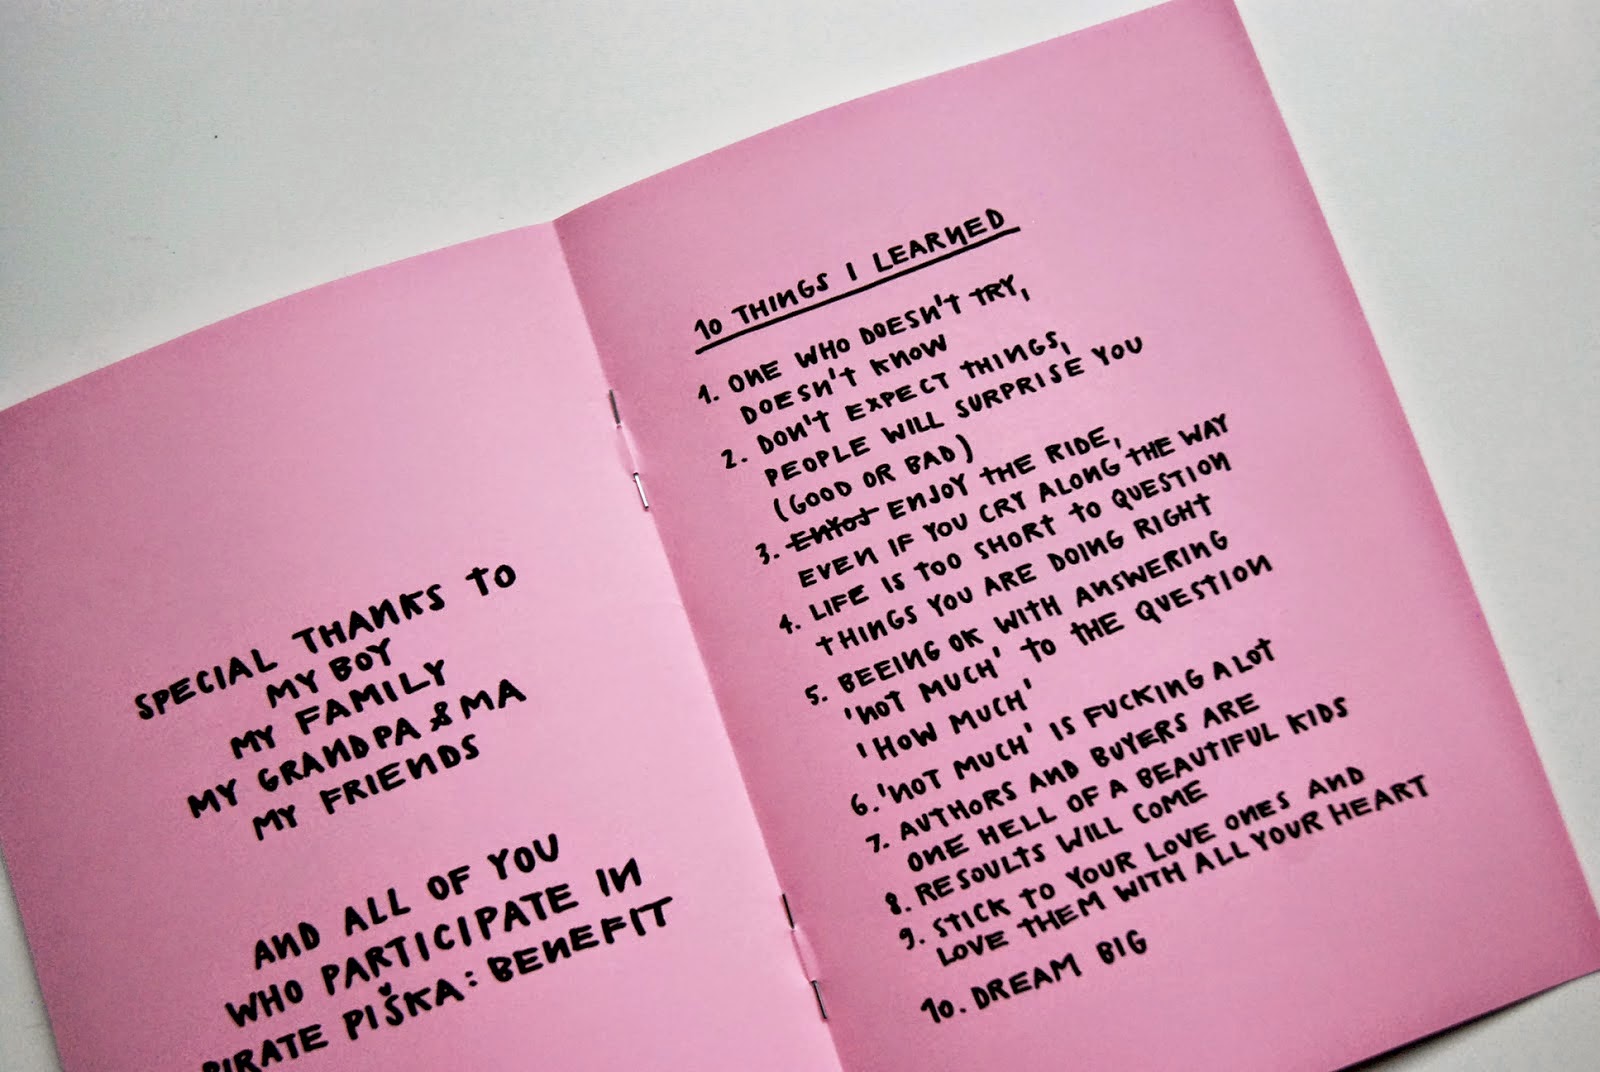 SPECIAL THANKS TO
MY BOY
MY FAMILY
MY GRANDPA & MA
MY FRIENDS
AND ALL OF YOU
WHO PARTICIPATE IN
PIRATE PIŠKA: BENEFIT
10 THINGS I LEARNED
1. ONE WHO DOESN'T TRY,
DOESN'T KNOW
2. DON'T EXPECT THINGS,
PEOPLE WILL SURPRISE YOU
(GOOD OR BAD)
3. ENYOJ ENJOY THE RIDE,
EVEN IF YOU CRY ALONG THE WAY
4. LIFE IS TOO SHORT TO QUESTION
THINGS YOU ARE DOING RIGHT
5. BEEING OK WITH ANSWERING
'NOT MUCH' TO THE QUESTION
'HOW MUCH'
6. 'NOT MUCH' IS FUCKING A LOT
7. AUTHORS AND BUYERS ARE
ONE HELL OF A BEAUTIFUL KIDS
8. RESOULTS WILL COME
9. STICK TO YOUR LOVE ONES AND
LOVE THEM WITH ALL YOUR HEART
10. DREAM BIG